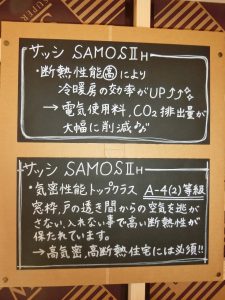 サッシ SAMOSⅡH
・断熱性能高により
冷暖房の効率がUP↑↑
→電気使用料、CO2排出量が
大幅に削減♪♪
サッシ SAMOSⅡH
・気密性能トップクラス A-4(2)等級
窓枠、戸の透き間からの空気を逃が
さない、入れない事で高い断熱性が
保たれています。
→高気密、高断熱住宅には必須!!
SUPER